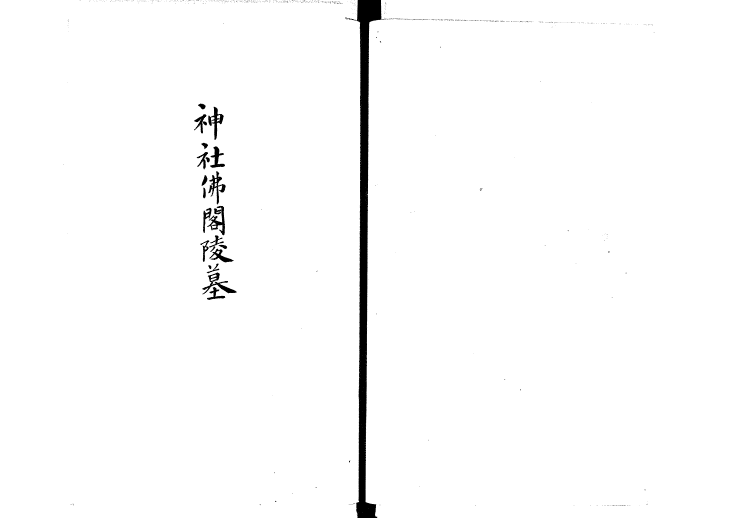 神社佛閣陵墓